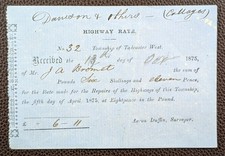 Dawson & others — (Cottages)
HIGHWAY RATE.
No 32 Township of Tadcaster West.
Received the 13th day of Oct 1875,
of Mr. J A Bromet the sum of
Pounds, Six Shillings and eleven Pence,
Rate due for the Repairs of the Highways of this Township,
the fifth day of April, 1875, at Eightpence in the Pound.
£ - 6 - 11 Surveyor.